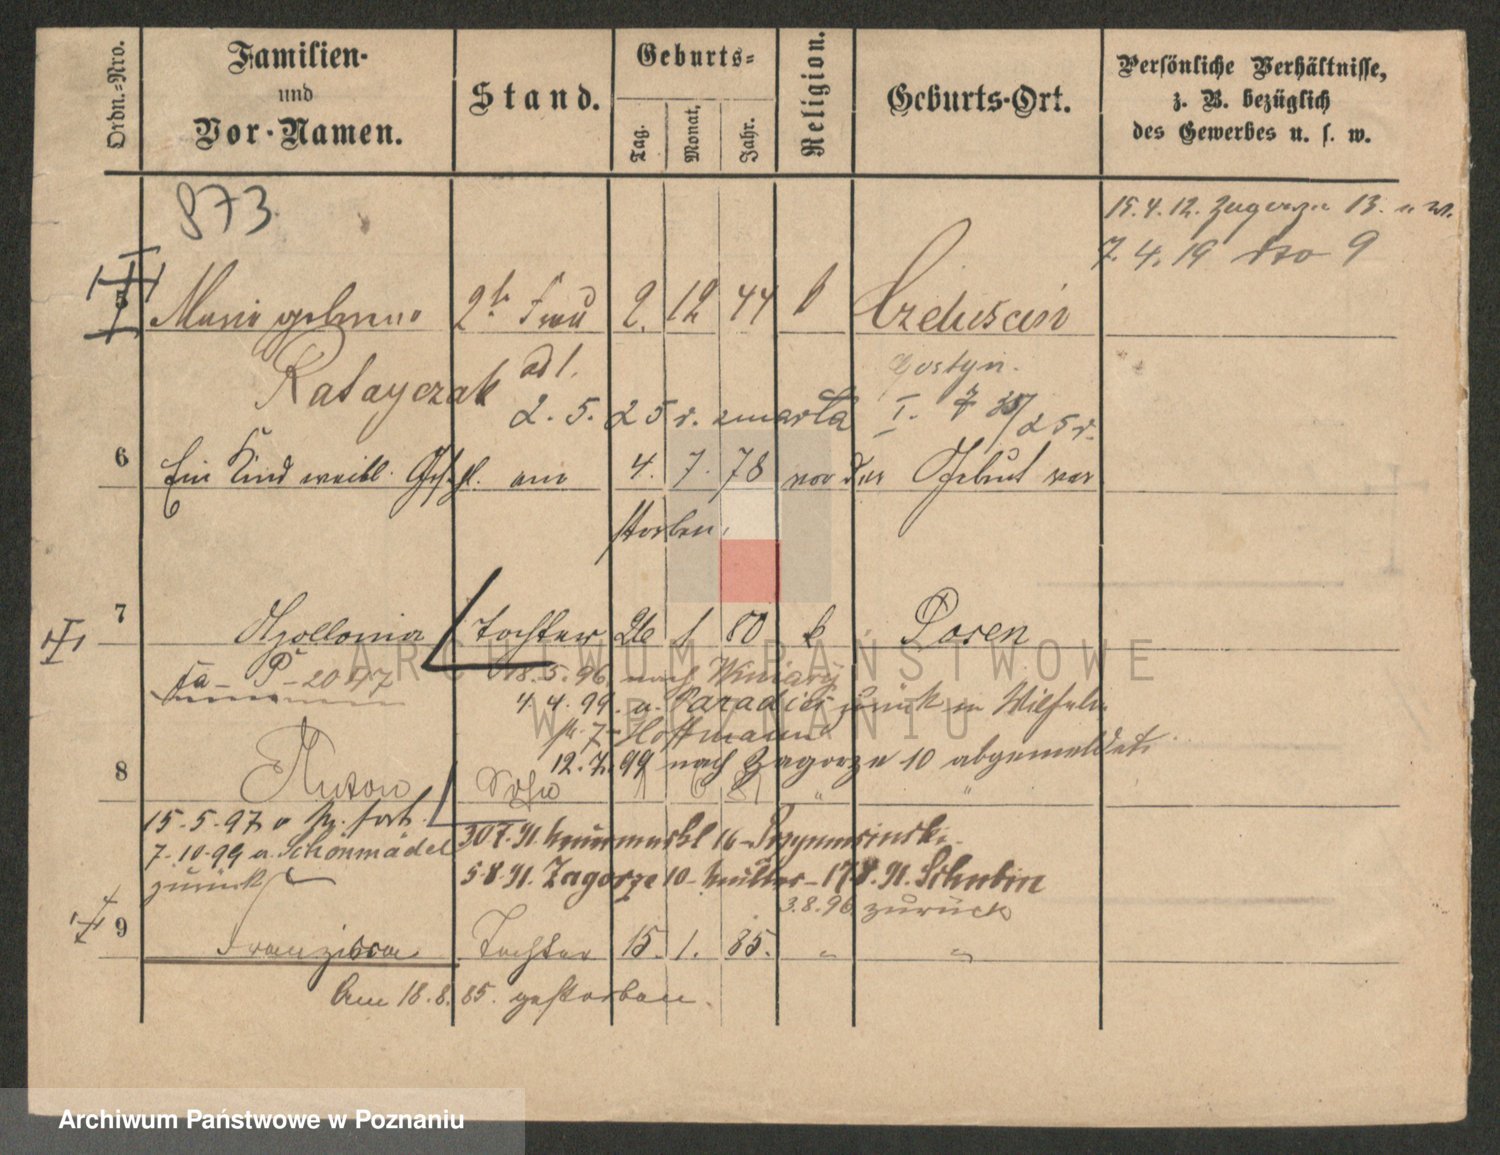 Ordn.-Nro.
Familien-
und
Vor-Namen.
Stand.
Geburts-
Tag.
Monat.
Jahr.
Religion.
Geburts-Ort.
Persönliche Verhältnisse,
z. B. bezüglich
des Gewerbes u. s. w.
873
15.4.12. Zagorze 13.
7. 4. 19 dto 9
5 Marie geborene 2te Frau 2. 12 44 k
Ratayczak ad 1. Gostyn.
2. 5. 25 r. zmarła I. 25 r.
6 Ein Kind weibl. Geschl. am 4. 7. 78 vor der Geburt ver
storben.
7 Apollonia Tochter 26 1 80 k Posen
18.5.96. nach Winiary
4.4.99. a. Paradies zurück
Hoffmann
12.7.99 nach Zagorze 10 abgemeldet
8 Anton Sohn 1 6 81 " "
15.5.97 fort.
7.10.99 a. Schönmädel
zurück
30 7. 91. 16
5.8.91. Zagorze 10 - 17 8. 91. Schubin
3.8.96 zurück
9 Franziska Tochter 15. 1. 85. " "
Am 18.8.85. gestorben.
ARCHIWUM PAŃSTWOWE
W POZNANIU
Archiwum Państwowe w Poznaniu